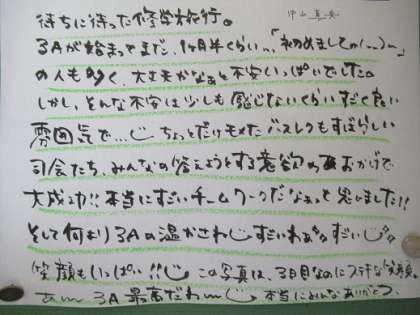 待ちに待った修学旅行。
3Aが始まってまだ、1ヶ月半くらい…「初めまして
の人も多く、大丈夫かなぁと不安いっぱいでした。
しかし、そんな不安は少しも感じないくらいすごく良い
雰囲気で…じ ちょっとだけもめたバスレクもすばらしい
司会たち、みんなの答えようとする意欲のおかげで
大成功!!本当にすごいチームワークだなぁっと思いました!!
そして何より3Aの温かさわじすごいわぁ すごいじ!!
笑顔もいっぱい!!じ この写真は、3日目なのにステキな笑顔。
あー 3A最高だわーじ 本当にみんなありがとう。